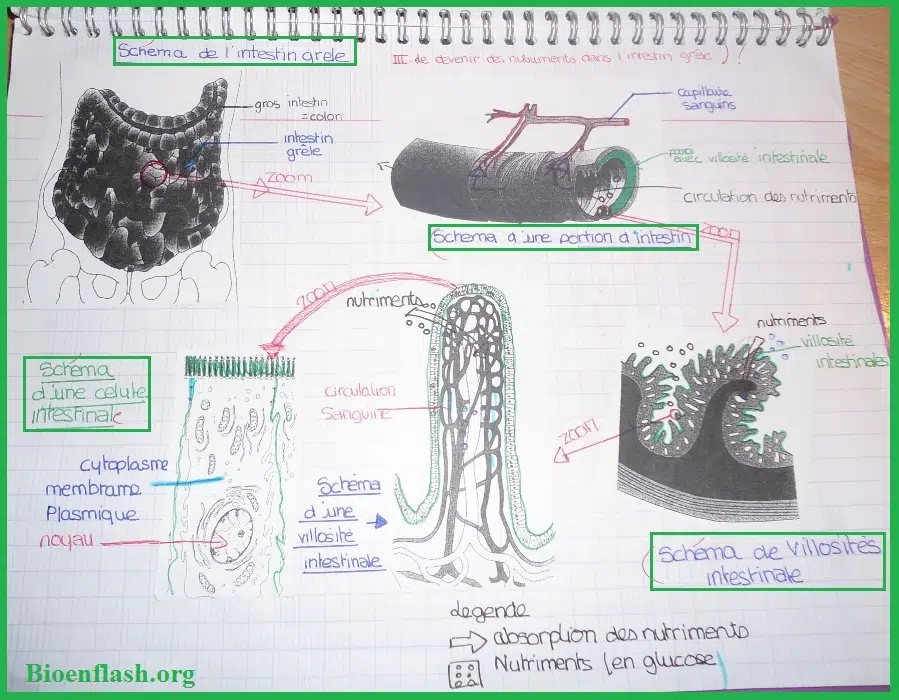 Schéma de l'intestin grele
III-de devenir des nutriments dans l'intestin grêle
gros intestin
=colon
intestin
grêle
zoom
capillaire
sanguins
avec villosité intestinale
circulation des nutriments
Schema d'une portion d'intestin
zoom
zoom
nutriments
nutriments
villosité
intestinales
Schéma
d'une celule
intestinale
circulation
Sanguine
zoom
cytoplasme
membrame
Plasmique
noyau
Schéma
d'une
villosité
intestinale
Schéma de Villosités
intestinale
Legende
absorption des nutriments
Nutriments (en glucose)
Bioenflash.org